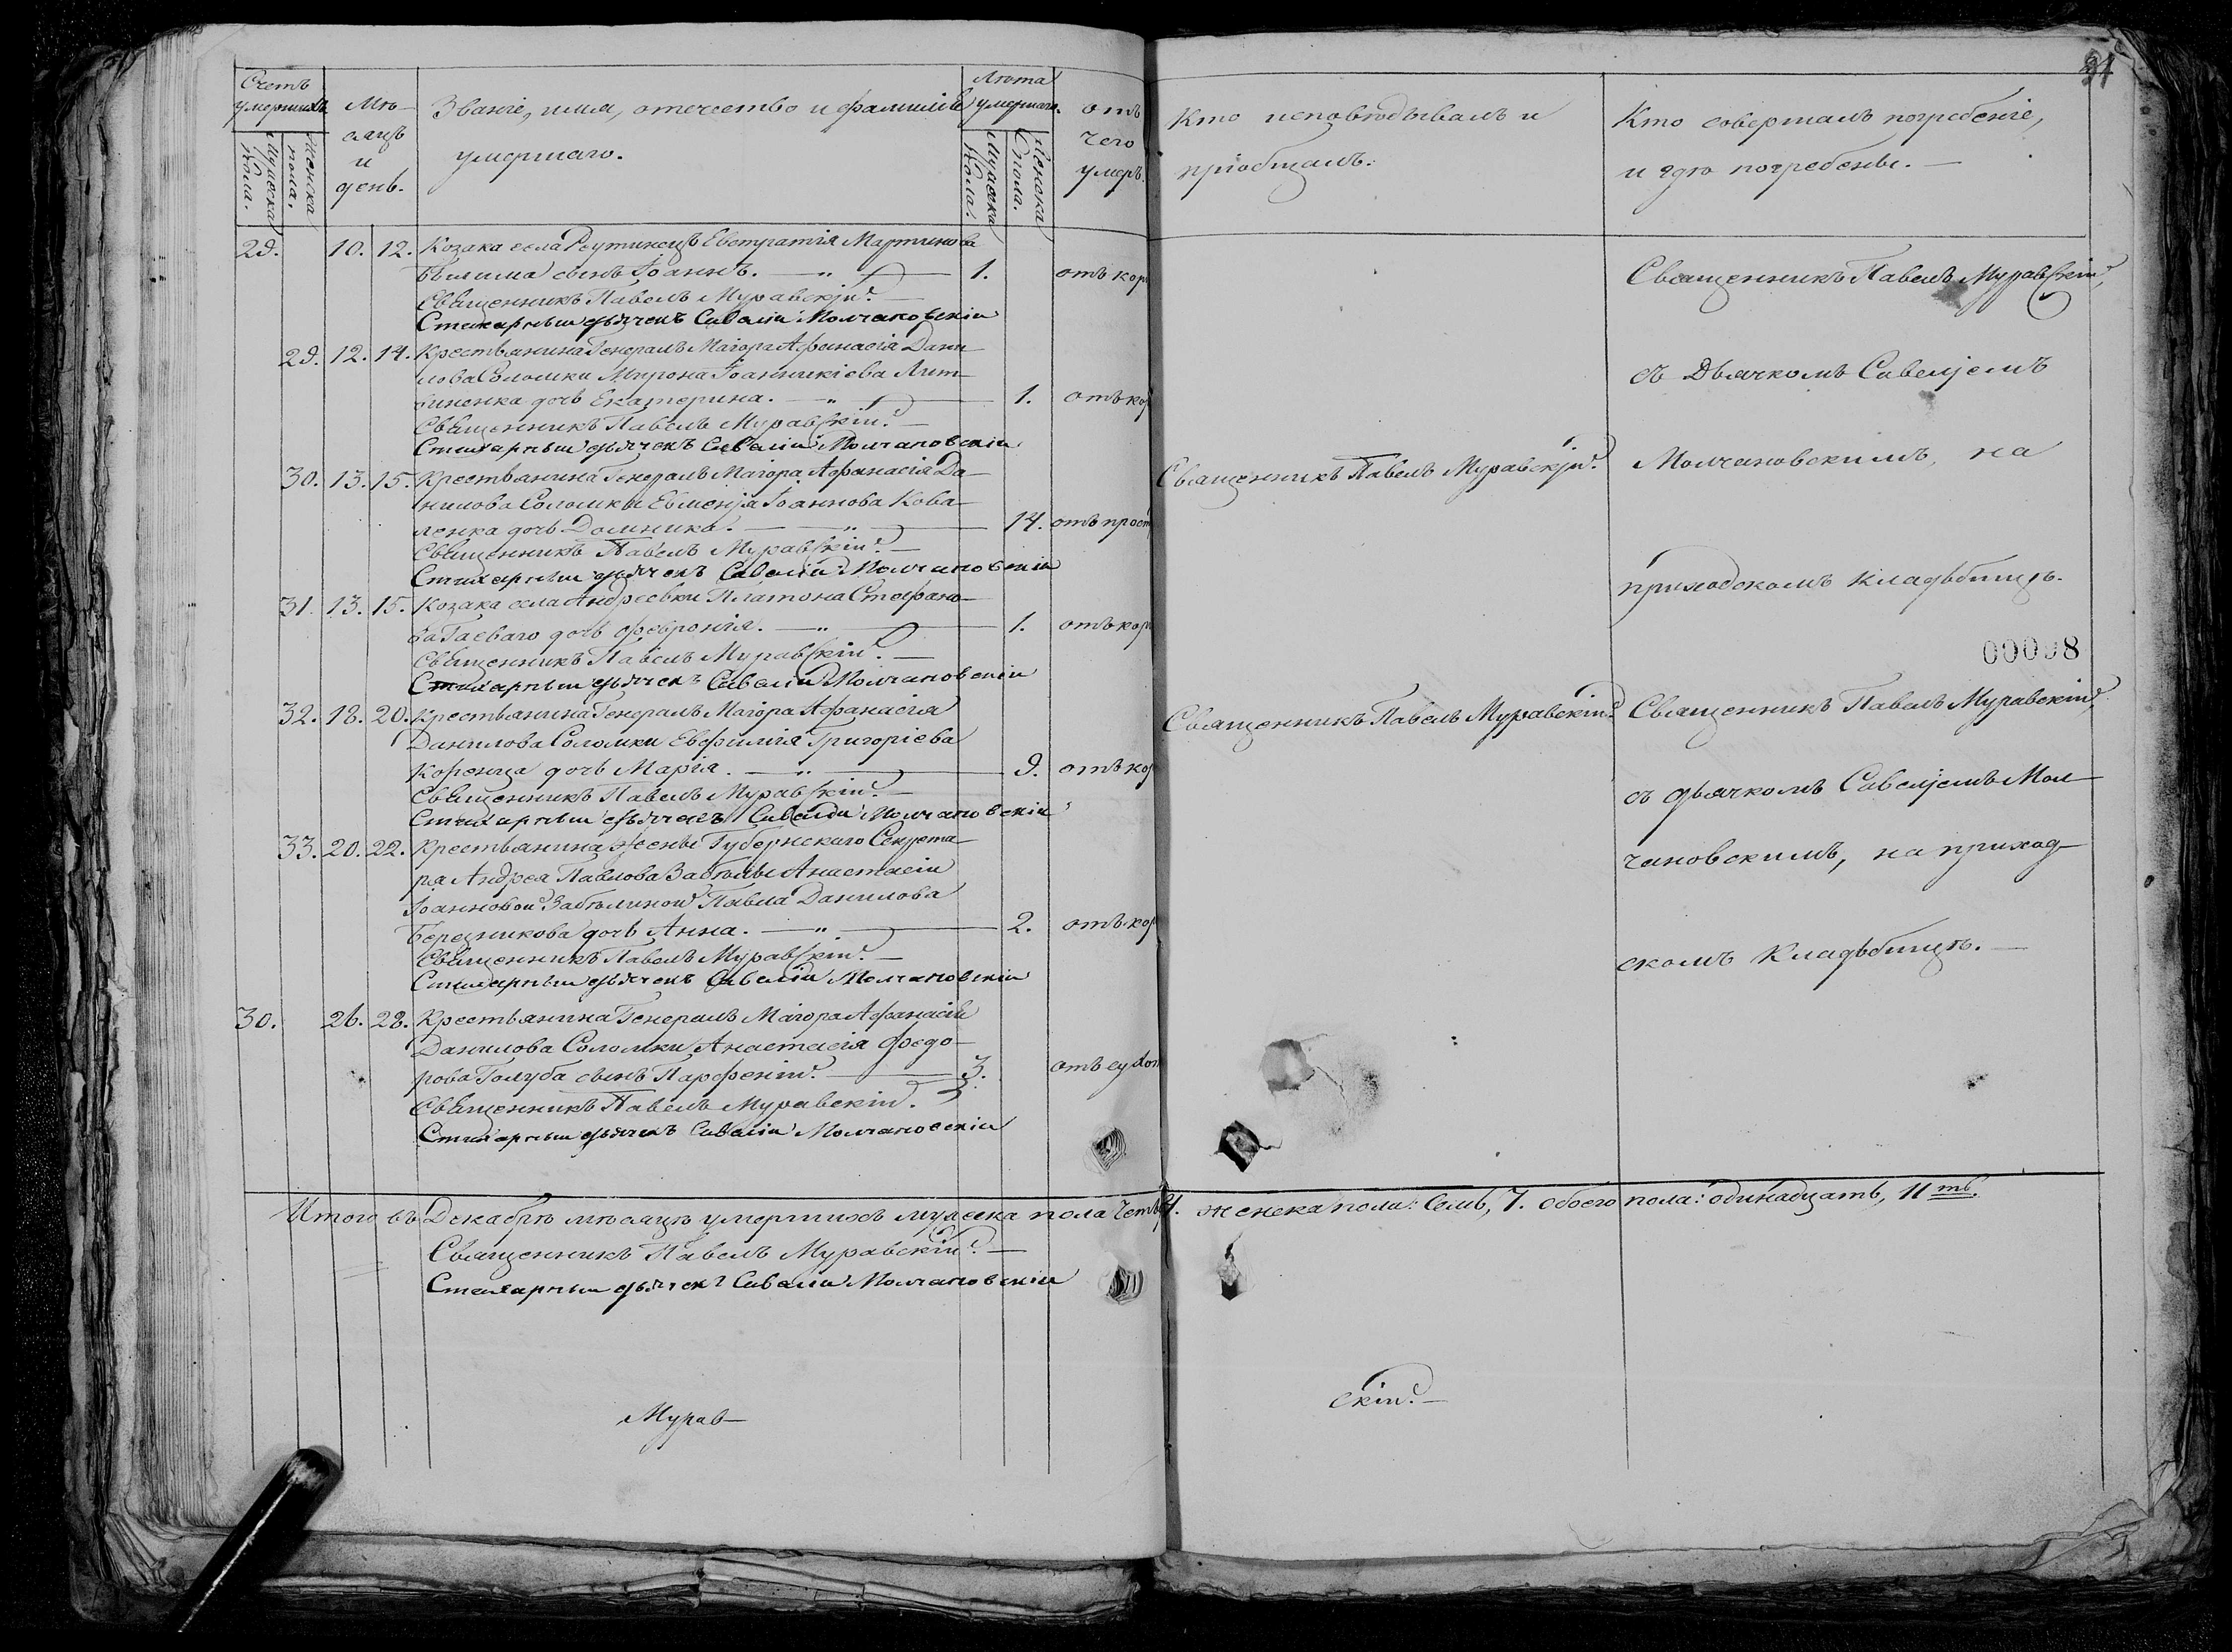 31
Счетъ умершихъ.
Мужеска пола.
Женска пола.
Мѣ-
сяцъ
и
день.
Званіе, имя, отчество и фамиліе
умершаго.
Лѣта
умершаго.
Мужеска пола.
Женска пола.
отъ
чего
умеръ.
Кто исповѣдывалъ и
пріобщалъ.
Кто совершалъ погребеніе,
и гдѣ погребены.—
29. 10. 12. Козака села Реутинецъ Евстратія Мартинова
сынъ Іоаннъ. — „ — 1. отъ кор
Священникъ Павелъ Муравскій.—
Стихарный дьячекъ Савелій Молчановскій
29. 12. 14. Крестьянина Генералъ Маіора Афанасія Дани-
лова Соломки Мирона Іоанникіева Лит-
виненка дочь Екатерина. — „ — 1. отъ кор
Священникъ Павелъ Муравскій.—
Стихарный дьячекъ Савелій Молчановскій
30. 13. 15. Крестьянина Генералъ Маіора Афанасія Да-
нилова Соломки Евменія Іоаннова Кова-
ленка дочь Домника. — „ — 14. отъ прост
Священникъ Павелъ Муравскій.—
Стихарный дьячекъ Савелій Молчановскій
31. 13. 15. Козака села Андреевки Платона Стефано-
ва Гаеваго дочь Февронія. — „ — 1. отъ кор
Священникъ Павелъ Муравскій.—
Стихарный дьячекъ Савелій Молчановскій
32. 18. 20. Крестьянина Генералъ Маіора Афанасія
Данилова Соломки Евфимія Григоріева
Коренца дочь Марія. — „ — 9. отъ кор
Священникъ Павелъ Муравскій.—
Стихарный дьячекъ Савелій Молчановскій
33. 20. 22. Крестьянина жены Губернскаго Секрета-
ря Андрея Павлова Забѣлы Анастасіи
Іоанновой Забѣлиной Павла Данилова
Березникова дочь Анна. — „ — 2. отъ кор
Священникъ Павелъ Муравскій.—
Стихарный дьячекъ Савелій Молчановскій
30. 26. 28. Крестьянина Генералъ Маіора Афанасія
Данилова Соломки Анастасія Федо-
рова Голуба сынъ Парфеній. — 3. отъ сухот
Священникъ Павелъ Муравскій.
Стихарный дьячекъ Савелій Молчановскій
Священникъ Павелъ Муравскій.
Священникъ Павелъ Муравскій.
Священникъ Павелъ Муравскій,
съ Дьячкомъ Савеліемъ
Молчановскимъ, на
приходскомъ кладьбищѣ.
00098
Священникъ Павелъ Муравскій,
съ дьячкомъ Савеліемъ Мол-
чановскимъ, на приход-
скомъ кладьбищѣ.—
Итого въ Декабрѣ мѣсяцѣ умершихъ мужеска пола 4. женска пола: Семь, 7. обоего пола: одинадцать, 11ть.
Священникъ Павелъ Муравскій.—
Стихарный дьячекъ Савелій Молчановскій
Мурав-
скій.—